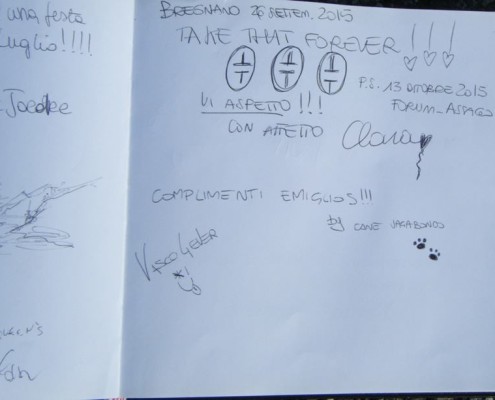 una festa
Luglio!!!!
BREGNANO 26 SETTEM. 2015
TAKE THAT FOREVER!!!
P.S. 13 OTTOBRE 2015
FORUM_ASSAGO
VI ASPETTO!!!
CON AFFETTO
Clara
COMPLIMENTI EMIGLIOS!!!
by CANE VAGABONDO
VASCO 4EVER